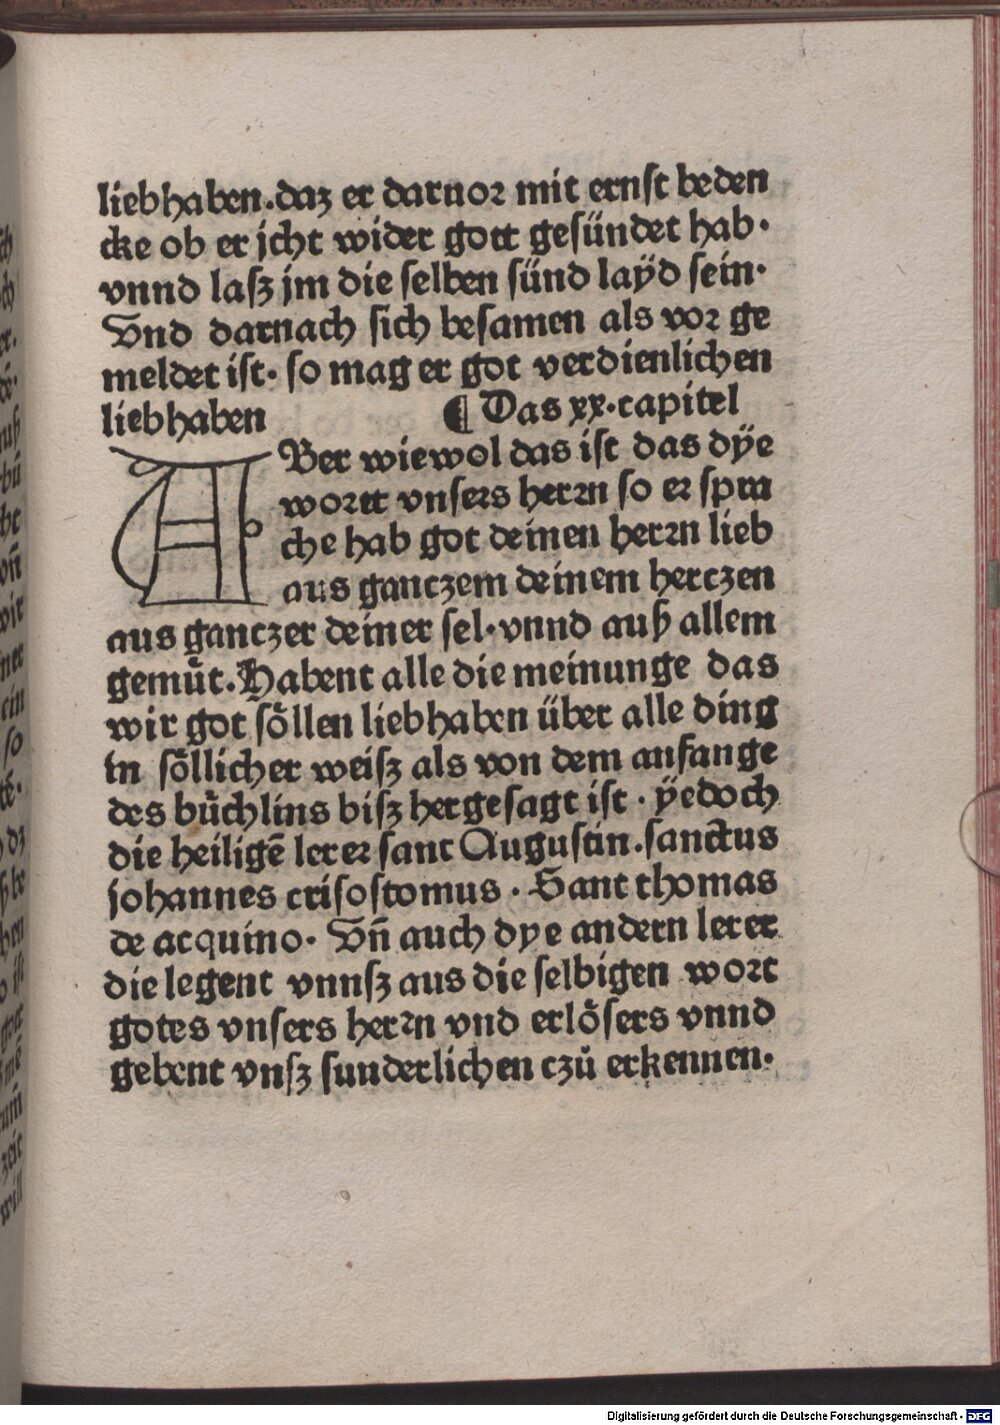 liebhaben.daz er daruor mit ernst beden
cke ob er jcht wider gott gesündet hab·
vnnd lasz jm die selben sünd laÿd sein·
Vnd darnach sich besamen als vor ge
meldet ist· so mag er got verdienlichen
liebhaben ¶ Das xx·capitel
ABer wiewol das ist das dÿe
wortt vnsers herrn so er spra
che hab got deinen herrn lieb
aus ganczem deinem herczen
aus ganczer deiner sel·vnnd auß allem
gemuͤt.Habent alle die meinunge das
wir got soͤllen liebhaben über alle ding
in soͤllicher weisz als von dem anfange
des buͤchlins bisz hergesagt ist · ÿedoch
die heiligē lerer sant Augustin.sanctus
johannes crisostomus · Sant thomas
de acquino· Vn̄ auch dye andern lerer
die legent vnnsz aus die selbigen wort
gotes vnsers herrn vnd erloͤsers vnnd
gebent vnsz sunderlichen czuͦ erkennen·
Digitalisierung gefördert durch die Deutsche Forschungsgemeinschaft - DFG